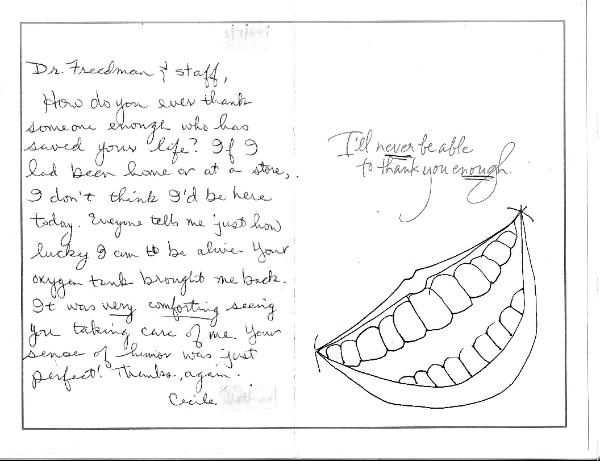 Dr. Freedman & staff,
How do you ever thank
someone enough who has
saved your life? If I
had been home or at a store,
I don't think I'd be here
today. Everyone tells me just how
lucky I am to be alive. Your
oxygen tank brought me back.
It was very comforting seeing
you taking care of me. Your
sense of humor was just
perfect! Thanks, again.
Cecile
I'll never be able
to thank you enough.